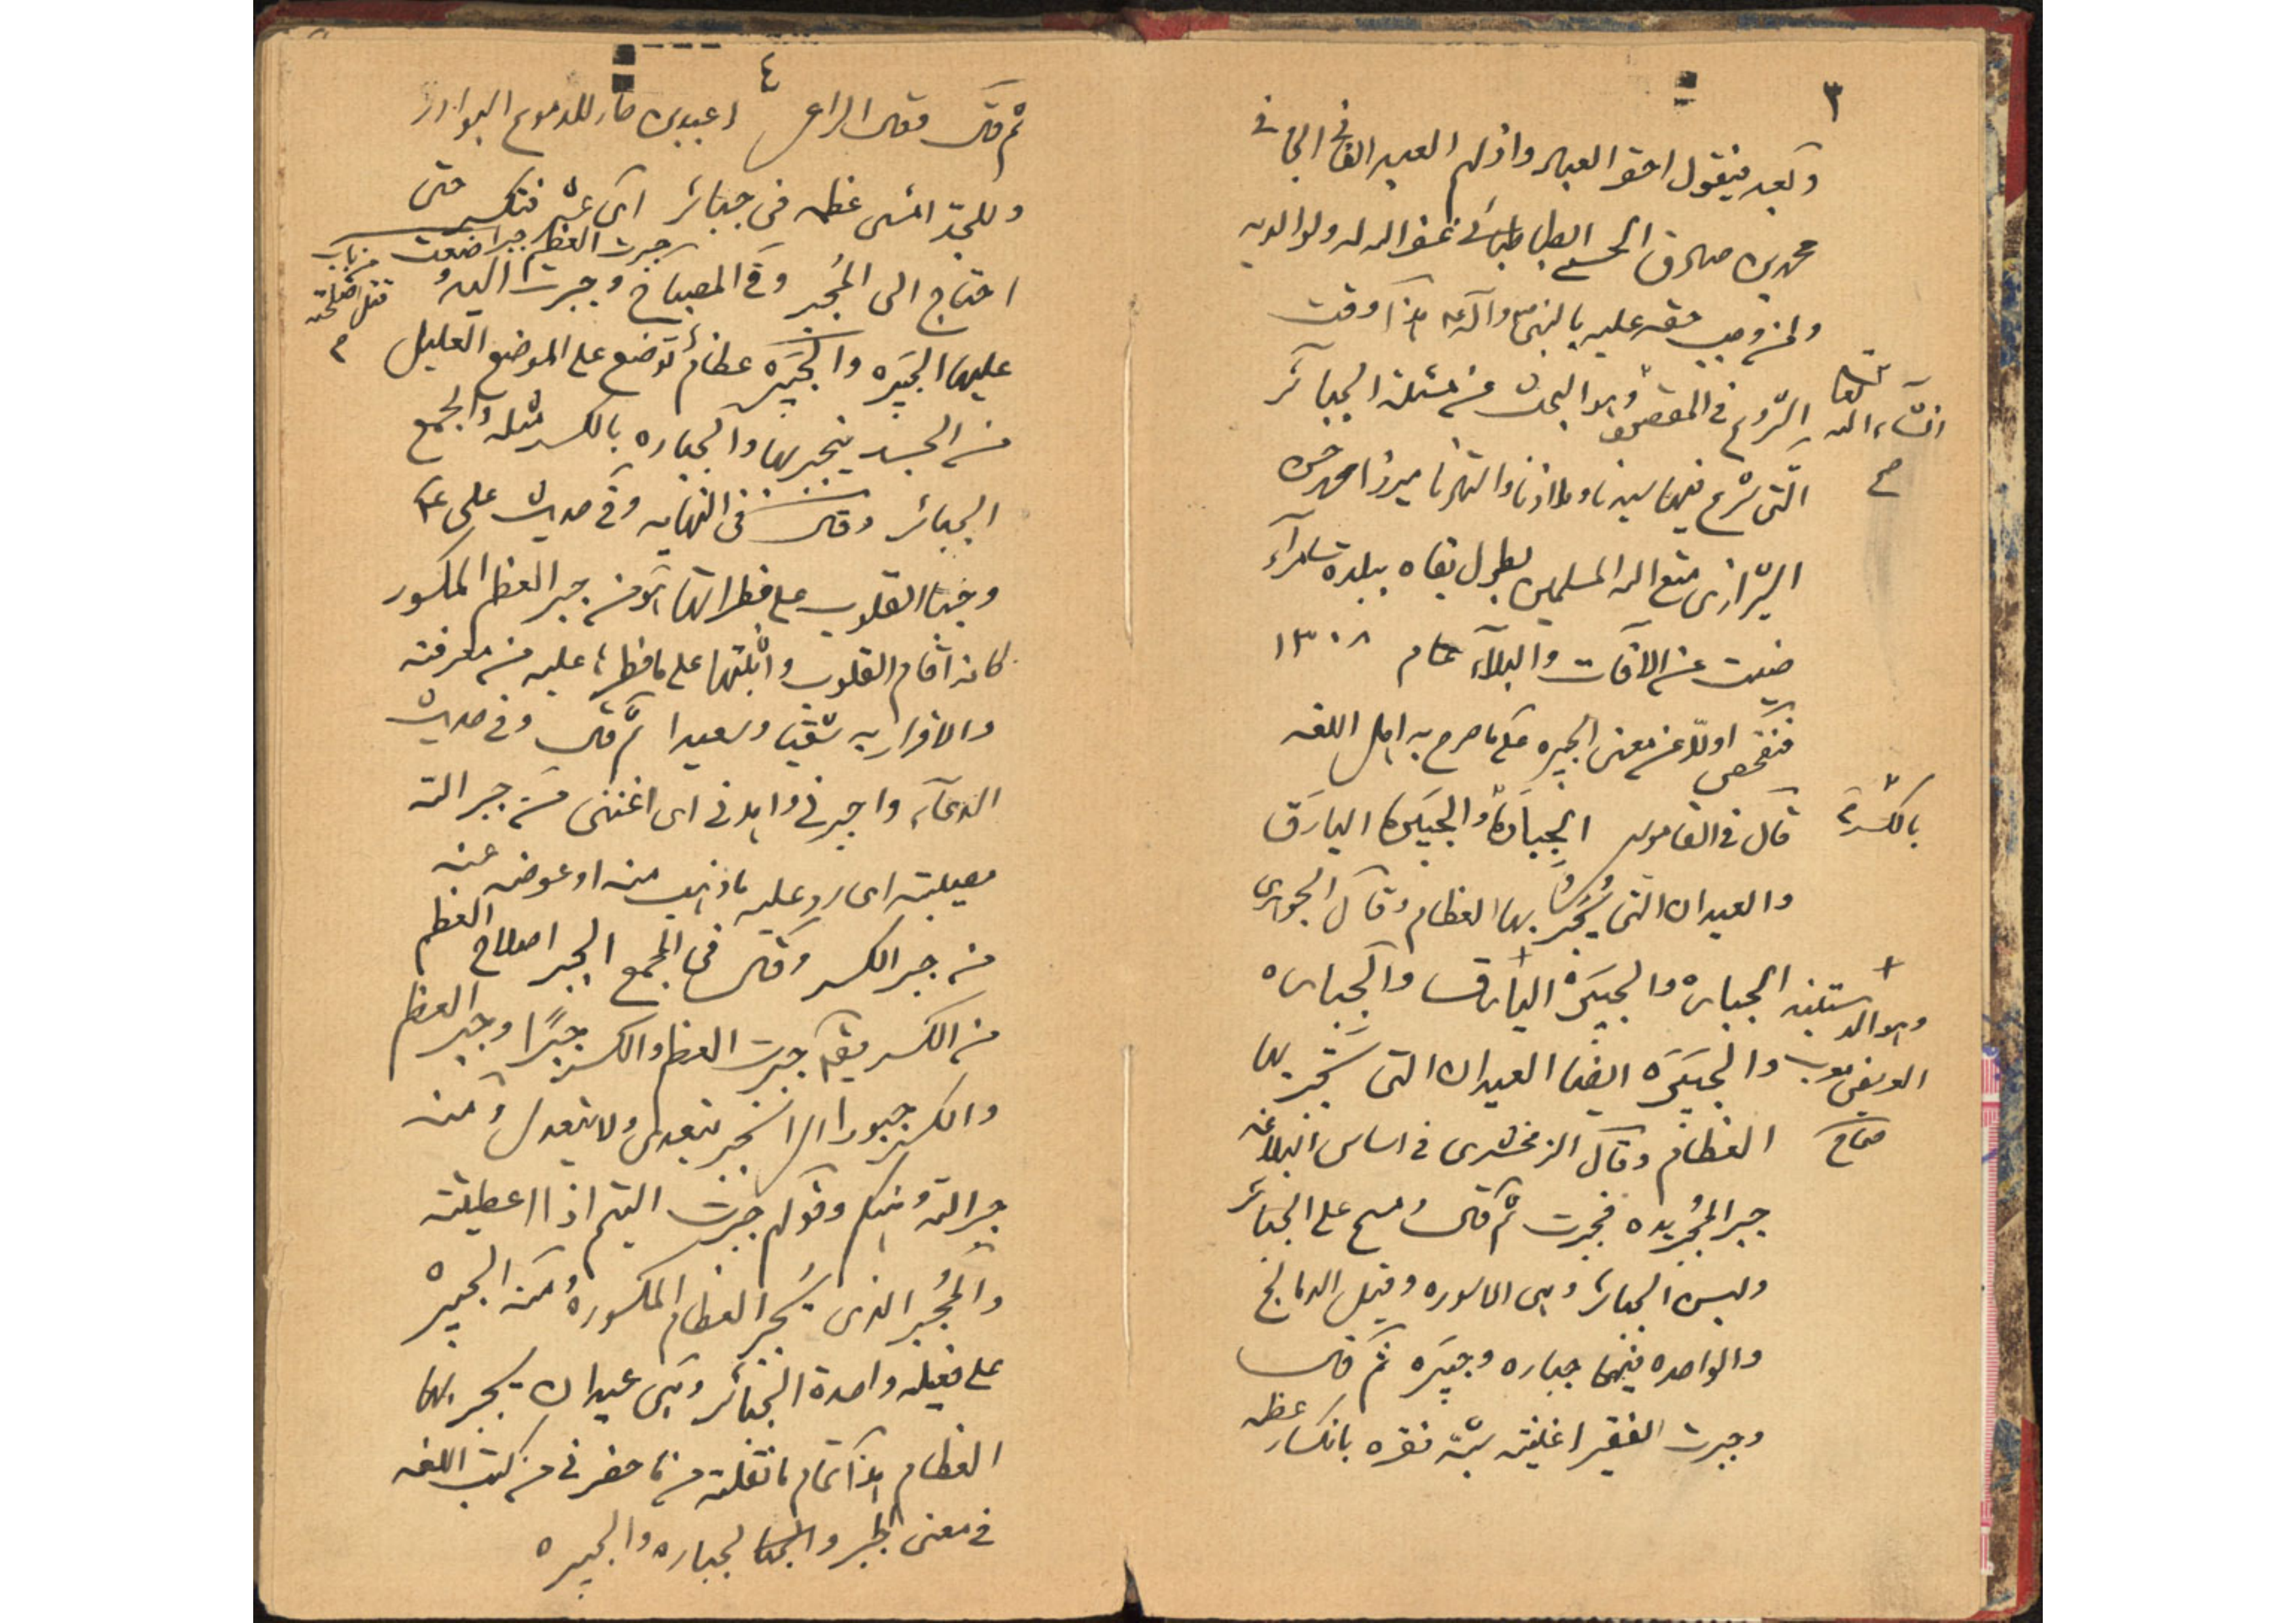 ٣
وبعد فيقول احقر العباد واذلهم العبد الفانى الجانى
محمد بن صادق الحسنى الطباطبائى غفر الله له ولوالديه
ولمن وجب حقه عليه بالنبى وآله هذا اوقت
انشاء الله تعالى الشروع فى المقصود وهو البحث عن مسئلة الجبائر
صح
التى شرع فيها سيدنا وملاذنا واستادنا ميرزا محمد حسن
الشيرازى متع الله المسلمين بطول بقاه ببلدة سامراء
صينت عن الافات والبلاء عام ١٣٠٨
فنفحص اولا عن معنى الجبيره على ما صرح به اهل اللغه
بالكسر
قال فى القاموس الجبارة والجبيرة اليارق
والعيدان التى يجبر بها العظام وقال الجوهرى
الجباره والجبيرة اليارق والجباره
وهو الدستبند
والجبيرة ايضا العيدان التى تجبر بها
العريض معرب
صحاح
العظام وقال الزمخشرى فى اساس البلاغه
جبر المجبر يده فجبرت ثم قال ومسح على الجبائر
ولبس الجبائر وهى الاسوره وقيل الدمالج
والواحده فيهما جباره وجبيره ثم قال
وجبرت الفقير اغنيته شبه فقره بانكسار عظمه
٤
ثم قال وقال الراعى للدموع البوادر
وللجد امسى عظمه فى جبائر اى عثر فتكسر حتى
احتاج الى المجبر وفى المصباح وجبرت اليد
جبرت العظم جبرا من باب
قتل اصلحته
م
عليها الجبيره والجبيره عظام توضع على الموضع العليل
من الجسد ينجبر بها والجباره بالكسر مثله والجمع
الجبائر وقال فى النهايه وفى حديث على ع
وجبار القلوب على فطراتها هو من جبر العظم المكسور
كانه اقام القلوب واثبتها على ما فطرها عليه من معرفته
والاقرار به شقيا وسعيدا ثم قال وفى حديث
الدعاء واجبرنى واهدنى اى اغننى من جبر الله
مصيبته اى رد عليه ما ذهب منه او عوضه عنه
من جبر الكسر وقال فى المجمع الجبر اصلاح العظم
من الكسر يقال جبرت العظم والكسر جبرًا وجبر العظم
والكسر جبورا اى انجبر يتعدى ولا يتعدى ومنه
جبر الله وهنكم وقولهم جبرت اليتيم اذا اعطيته
والمجبر الذى يجبر العظام المكسوره ومنه الجبيره
على فعيله واحدة الجبائر وهى عيدان يجبر بها
العظام هذا تمام ما نقلته من ما حضرنى من كتب اللغه
فى معنى الجبر والجباره والجبيره